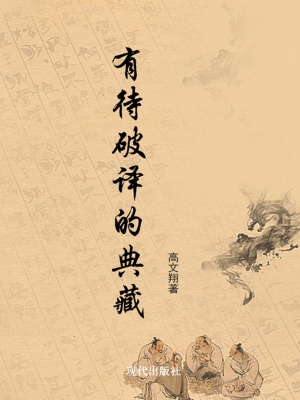 有待破译的典藏
高文翔著
现代出版社